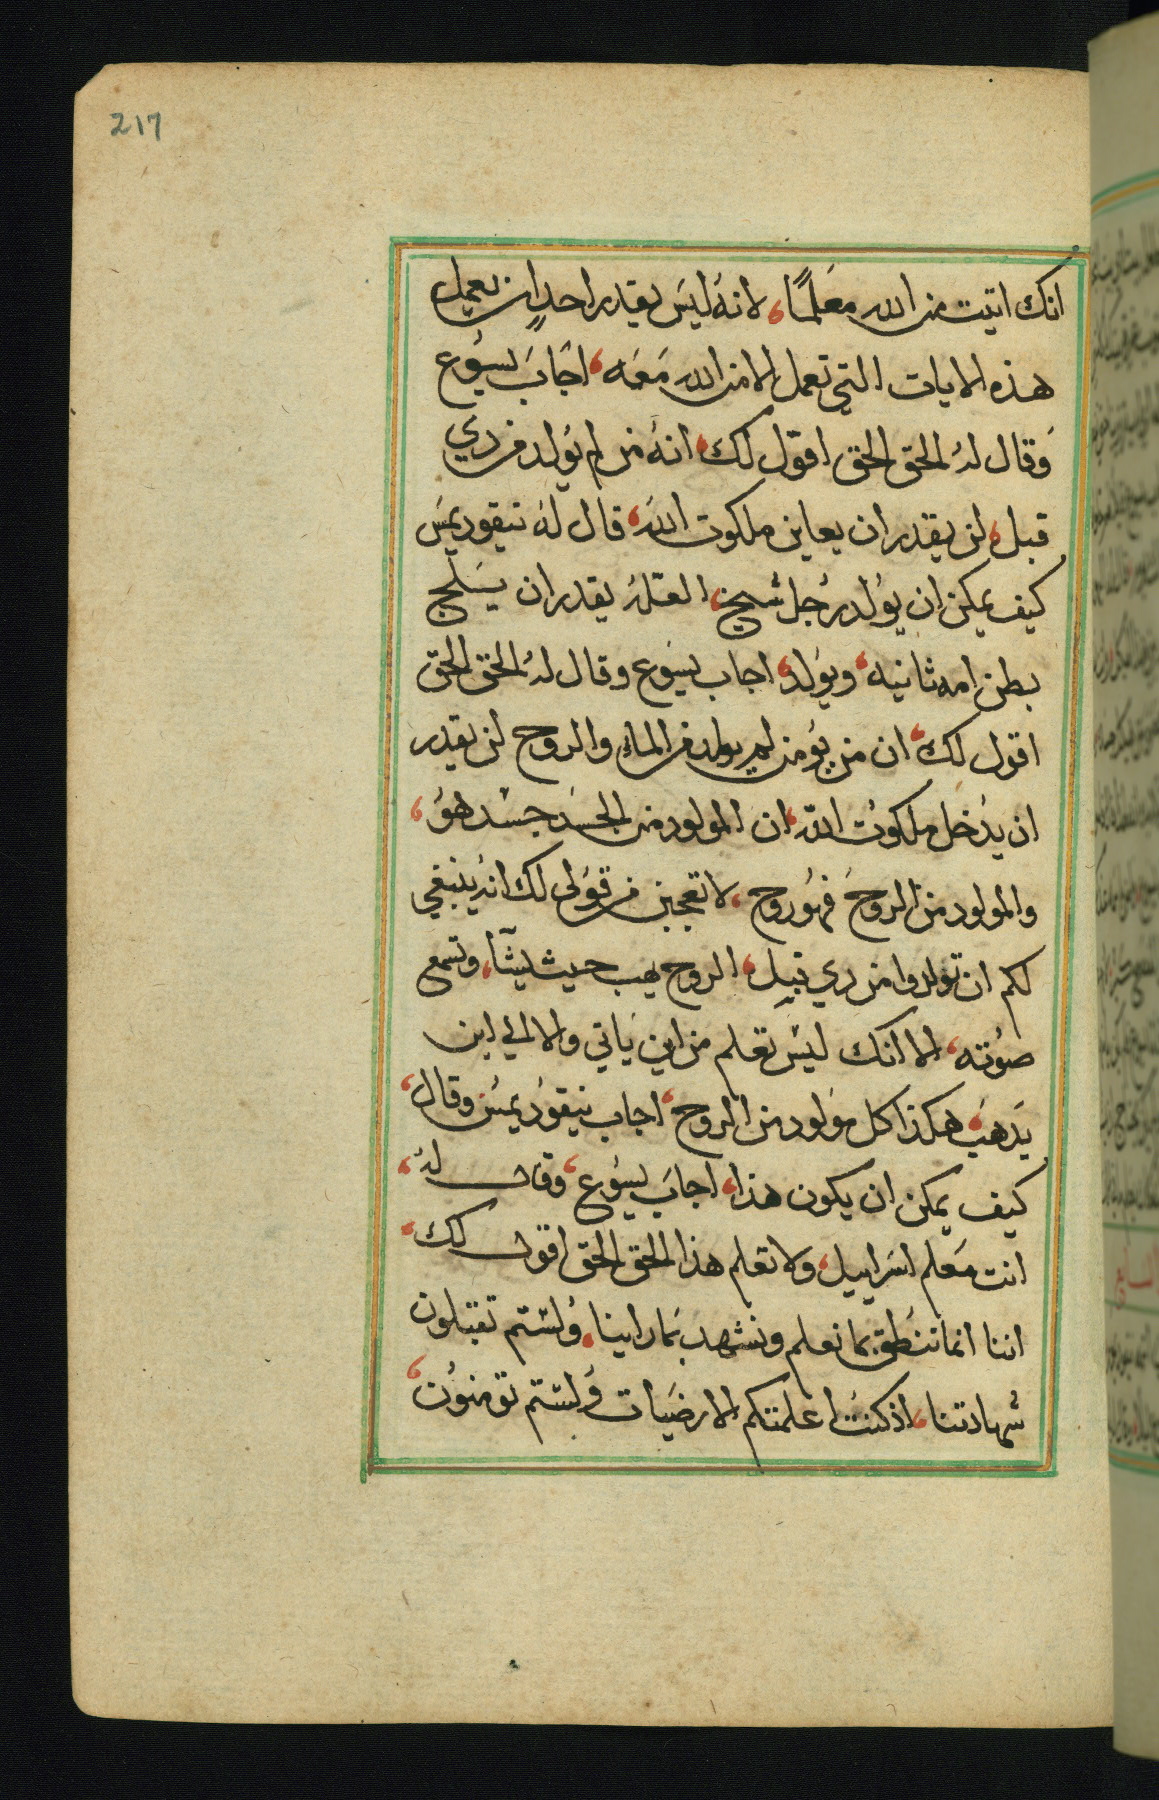 217
انك اتيت من الله معلمًا، لانه ليس يقدر احد ان يعمل
هذه الايات التي تعمل الا من الله معه، اجاب يسوع
وقال له الحق الحق اقول لك، انه من لم يولد من ذي
قبل، لن يقدر ان يعاين ملكوت الله، قال له نيقوديمس
كيف يمكن ان يولد رجل شيخ، العله يقدر ان يلج
بطن امه ثانيه، ويولد، اجاب يسوع وقال له الحق الحق
اقول لك، ان من يؤمن لم يولد من الماء والروح لن يقدر
ان يدخل ملكوت الله، ان المولود من الجسد جسد هو،
والمولود من الروح فهو روح، لا تعجبن من قولي لك انه ينبغي
لكم ان تولدوا من ذي قبل، الروح يهب حيث يشآ، وتسمع
صوته، الا انك ليس تعلم من اين ياتي والا الي اين
يذهب، هكذا كل مولود من الروح، اجاب نيقوديمس وقال،
كيف يمكن ان يكون هذا، اجاب يسوع، وقال له،
انت معلم اسراييل، ولا تعلم هذا الحق الحق اقول لك،
اننا انما ننطق بما نعلم ونشهد بما راينا، ولستم تقبلون
شهادتنا، اذ كنت اعلمتكم الارضيات ولستم تومنون،